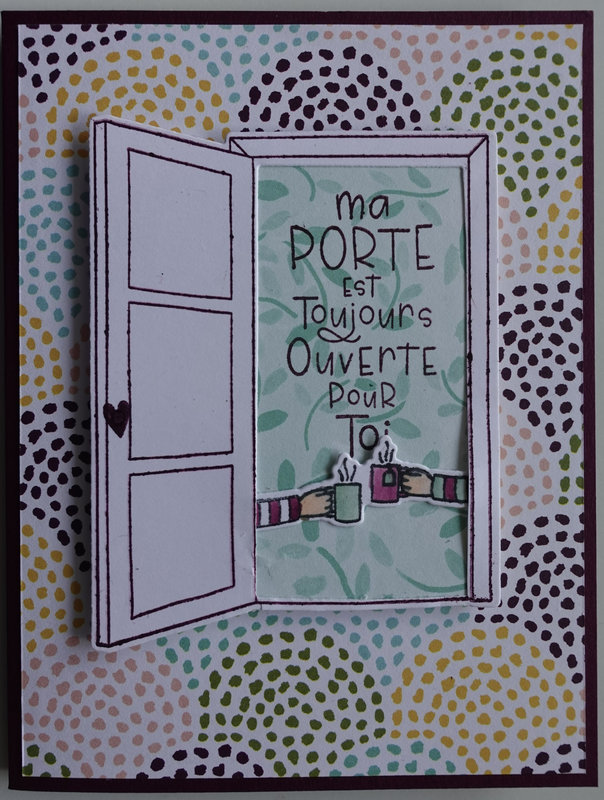 ma
PORTE
EST
Toujours
OuVERTE
POUR
Toi